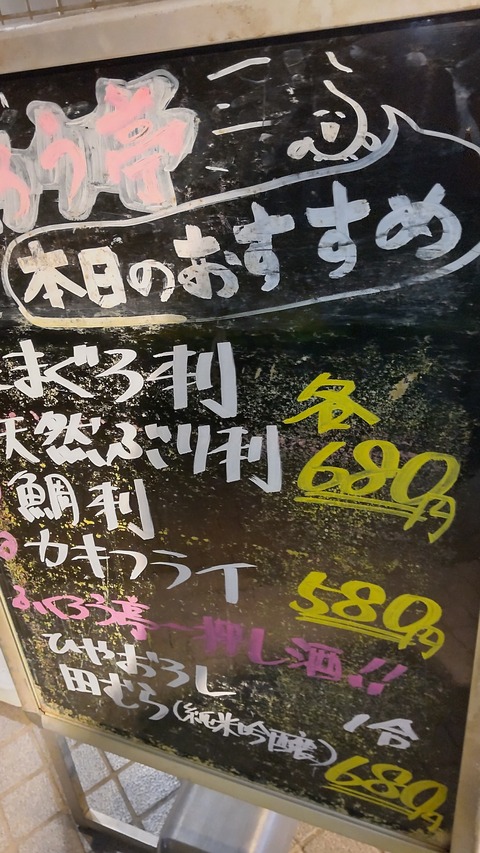 ろう亭
本日のおすすめ
まぐろ刺
各
天然ぶり刺
680円
鯛刺
カキフライ
580円
ふくろう亭一押し酒!!
ひやおろし
田むら(純米吟醸)
1合
680円